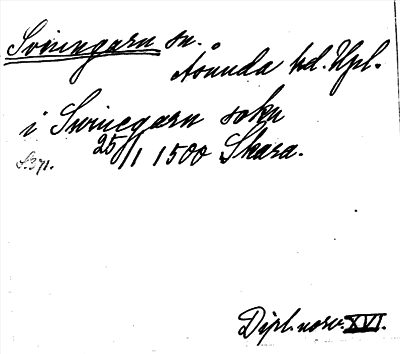 Svinegarn sn.
Åsunda hd. Upl.
i Swinegarn sokn
25/1 1500 Skara.
S. 371.
Dipl. norv. XVI.